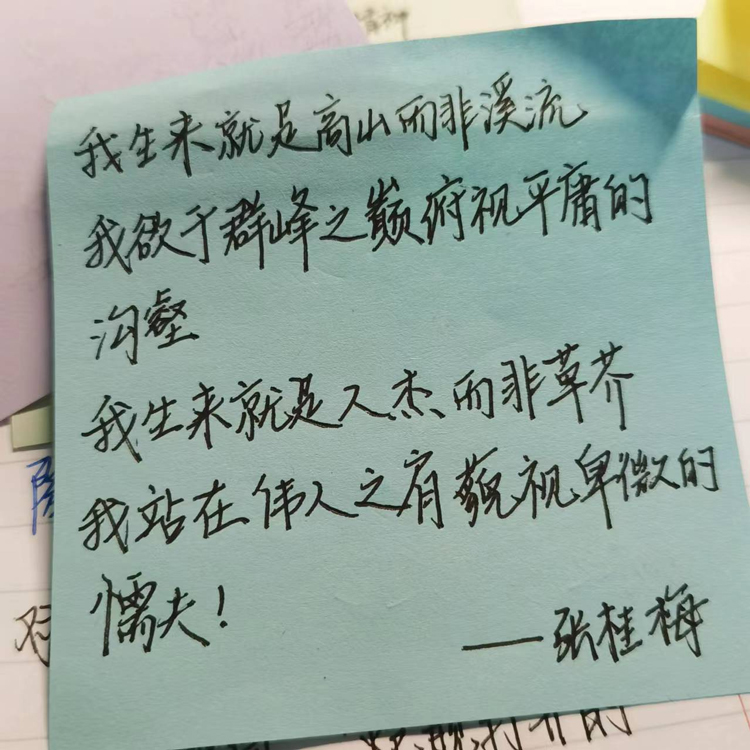 我生来就是高山而非溪流
我欲于群峰之巅俯视平庸的
沟壑
我生来就是人杰而非草芥
我站在伟人之肩藐视卑微的
懦夫！
——张桂梅